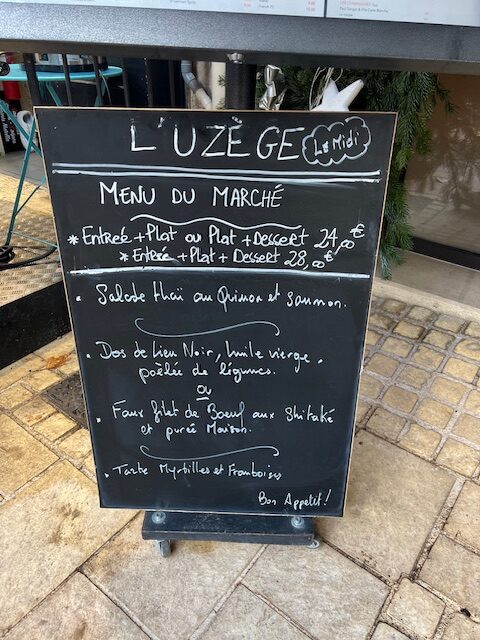 L'UZÈGE Le Midi
MENU DU MARCHÉ
* Entrée + Plat ou Plat + Dessert 24,00€
* Entrée + Plat + Dessert 28,00€
. Salade thaï au Quinoa et saumon.
. Dos de Lieu Noir, huile vierge,
poêlée de légumes.
ou
. Faux filet de Boeuf aux Shitaké
et purée Maison.
. Tarte Myrtilles et Framboises
Bon Appetit !